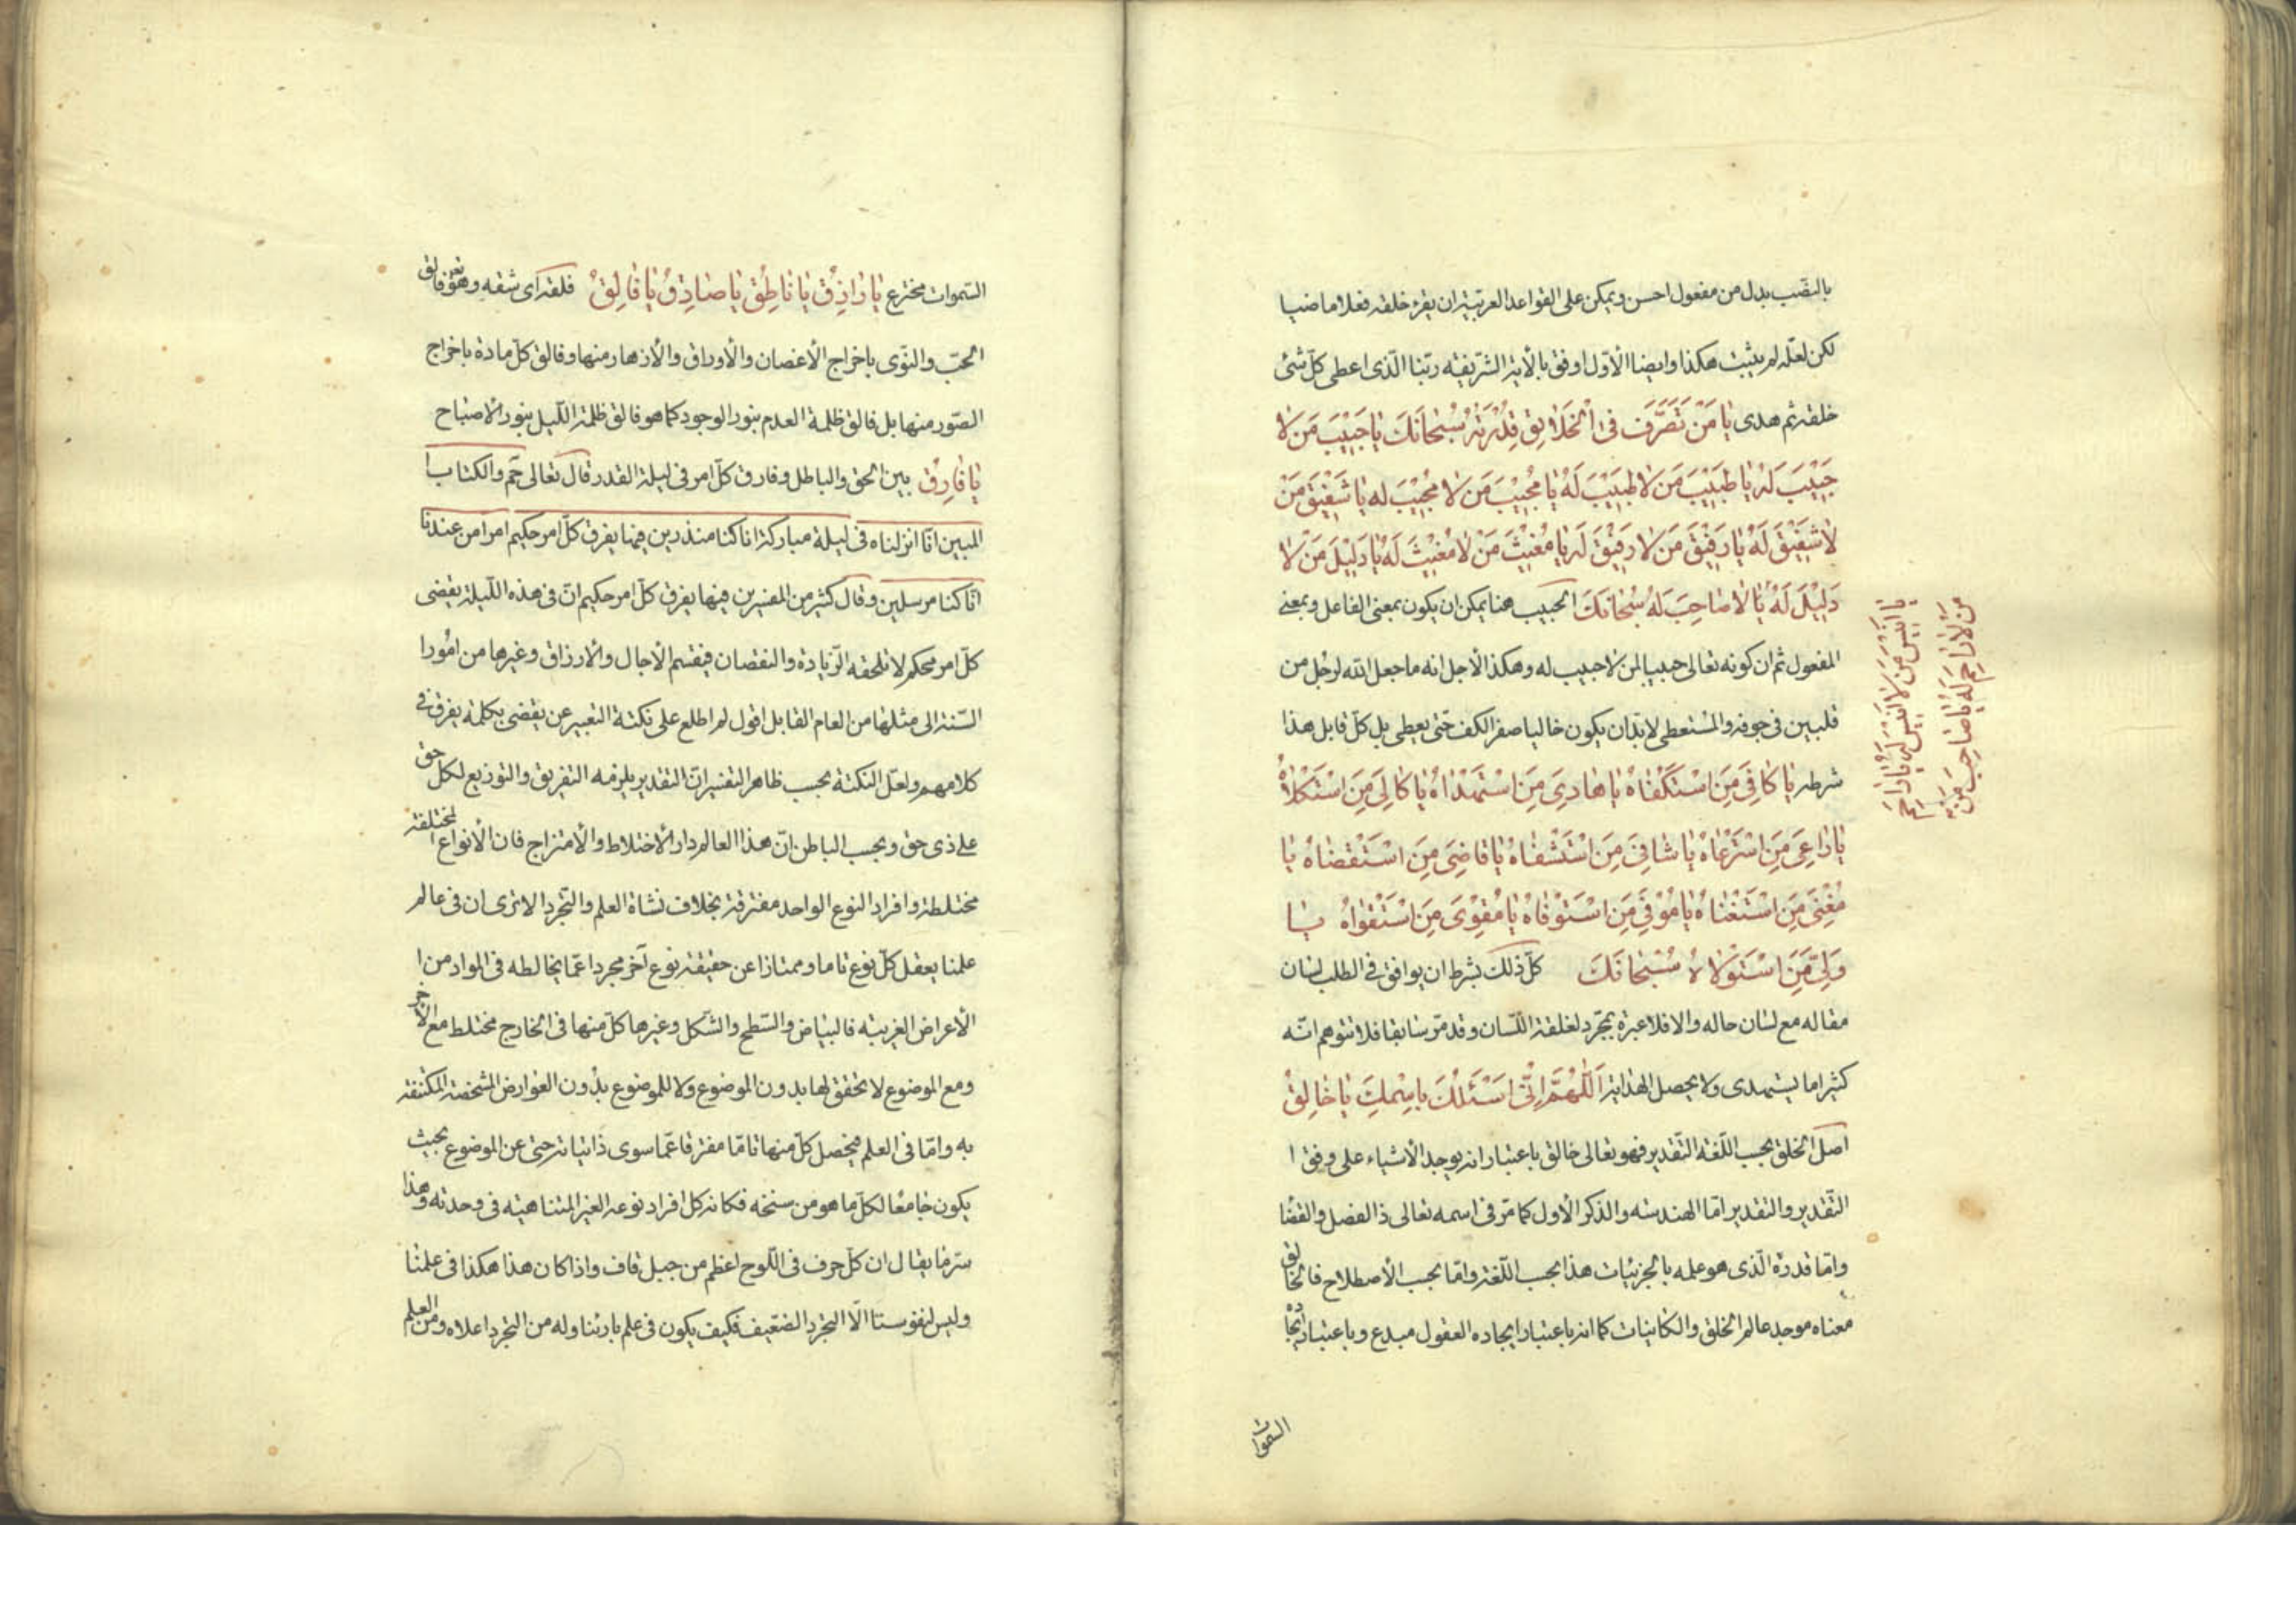 بالنصب بدل من مفعول احسن ويمكن على القواعد العربية ان يقرء خلقه فعلا ماضيا
لكن لعله لم يثبت هكذا وايضا الأول اوفق بالأية الشريفة ربنا الذى اعطى كل شئ
خلقه ثم هدى يا مَنْ تَصَرَّفَ فى الْخَلائِقِ قُدْرَتُهُ سُبْحانَكَ يا حَبيْبَ مَن لا
حَبيْبَ لَهُ يا طَبيْبَ مَن لا طَبيْبَ لَهُ يا مُجيْبَ مَن لا مُجيْبَ له يا شَفيْقَ مَنْ
لا شَفيْقَ لَهُ يا رَفيْقَ مَن لا رَفيْقَ لَه يا مُغيْثَ مَنْ لا مُغيْثَ لَهُ يا دَليْلَ مَنْ لا
دَليْلَ لَهُ يا لا صاحِبَ لَهُ سُبْحانَكَ الحبيب هنا يمكن ان يكون بمعنى الفاعل وبمعنى
المفعول ثم ان كونه تعالى حبيبا لمن لا حبيب له وهكذا لأجل انه ما جعل الله لرجل من
قلبين فى جوفه والمستعطى لا بد ان يكون خاليا صفر الكف حتى يعطى بل كل قابل هذا
شرطه يا كافِىَ مَنِ اسْتَكْفاهُ يا هادِىَ مَنِ اسْتَهْداهُ يا كالِىَ مَنِ اسْتَكْلاهُ
يا راعِىَ مَنِ اسْتَرْعاهُ يا شافِىَ مَنِ اسْتَشْفاهُ يا قاضِىَ مَنِ اسْتَقْضاهُ يا
مُغْنِىَ مَنِ اسْتَغْناهُ يا مُوْفِىَ مَنِ اسْتَوْفاهُ يا مُقوْىَ مَنِ اسْتَقْواهُ يا
وَلِىَّ مَنِ اسْتَوْلاهُ سُبْحانَكَ كل ذلك بشرط ان يوافق فى الطلب لسان
مقاله مع لسان حاله والا فلا عبرة بمجرد لقلقة اللسان وقد مر سابقا فلا تتوهم انه
كثيرا ما يستهدى ولا يحصل الهداية اَللّهُمَّ اِنّى اَسْئَلُكَ بِاسْمِكَ يا خالِقُ
اصل الخلق بحسب اللغة التقدير فهو تعالى خالق باعتبار انه يوجد الأشياء على وفق ا
التقدير والتقدير اما الهندسة والذكر الأول كما مر فى اسمه تعالى ذا الفضل والقضا
واما قدرة الذى هو علمه بالجزئيات هذا بحسب اللغة واما بحسب الأصطلاح فالخالق
معناه موجد عالم الخلق والكاينات كما انه باعتبار ايجاده العقول مبدع وباعتبار ايجاده
السموات
يا اَنيْسَ مَن لا اَنيْسَ لَهُ يا راحِمَ
مَن لا راحِمَ لَهُ يا صاحِبَ مَن
السموات مخترع يا رازِقُ يا ناطِقُ يا صادِقُ يا فالِقُ فلقه اى شقه وهو تعالى فالق
الحب والنوى باخراج الأغصان والأوراق والأزهار منها وفالق كل مادة باخراج
الصور منها بل فالق ظلمة العدم بنور الوجود كما هو فالق ظلمة الليل بنور الاصباح
يا فارِقُ بين الحق والباطل وفارق كل امر فى ليلة القدر قال تعالى حم والكتاب ا
المبين انا انزلناه فى ليلة مباركة انا كنا منذرين فيها يفرق كل امر حكيم امرا من عندنا
انا كنا مرسلين وقال كثير من المفسرين فيها يفرق كل امر حكيم ان فى هذه الليلة يقضى
كل امر محكم لا تلحقه الزيادة والنقصان فيقسم الأجال والأرزاق وغيرها من امورا
السنة الى مثلها من العام القابل اقول لم اطلع على نكتة التعبير عن يقضى بكلمة يفرق فى
كلامهم ولعل النكتة بحسب ظاهر التفسير ان التقدير يلزمه التفريق والتوزيع لكل حق
على ذى حق وبحسب الباطن ان هذا العالم دار الأختلاط والأمتزاج فان الأنواع المختلفة
مختلطة وافراد النوع الواحد مفترقة بخلاف نشاة العلم والتجرد الا ترى ان فى عالم
علمنا يعقل كل نوع تاما وممتازا عن حقيقة نوع آخر مجردا عما يخالطه فى المواد من ا
الأعراض الغريبه فالبياض والسطح والشكل وغيرها كل منها فى الخارج مختلط مع الأخر
ومع الموضوع لا تحقق لها بدون الموضوع ولا للموضوع بدون العوارض المشخصة المكتنفة
به واما فى العلم فيحصل كل منها تاما مفترقا عما سوى ذاتياته حتى عن الموضوع بحيث
يكون جامعا لكل ما هو من سنخه فكانه كل افراد نوعه الغير المتناهية فى وحدته وهذا
سر ما يقال ان كل حرف فى اللوح اعظم من جبل قاف واذا كان هذا هكذا فى علمنا
وليس لنفوسنا الا التجرد الضعيف فكيف يكون فى علم بارئنا وله من التجرد اعلاه ومن العلم